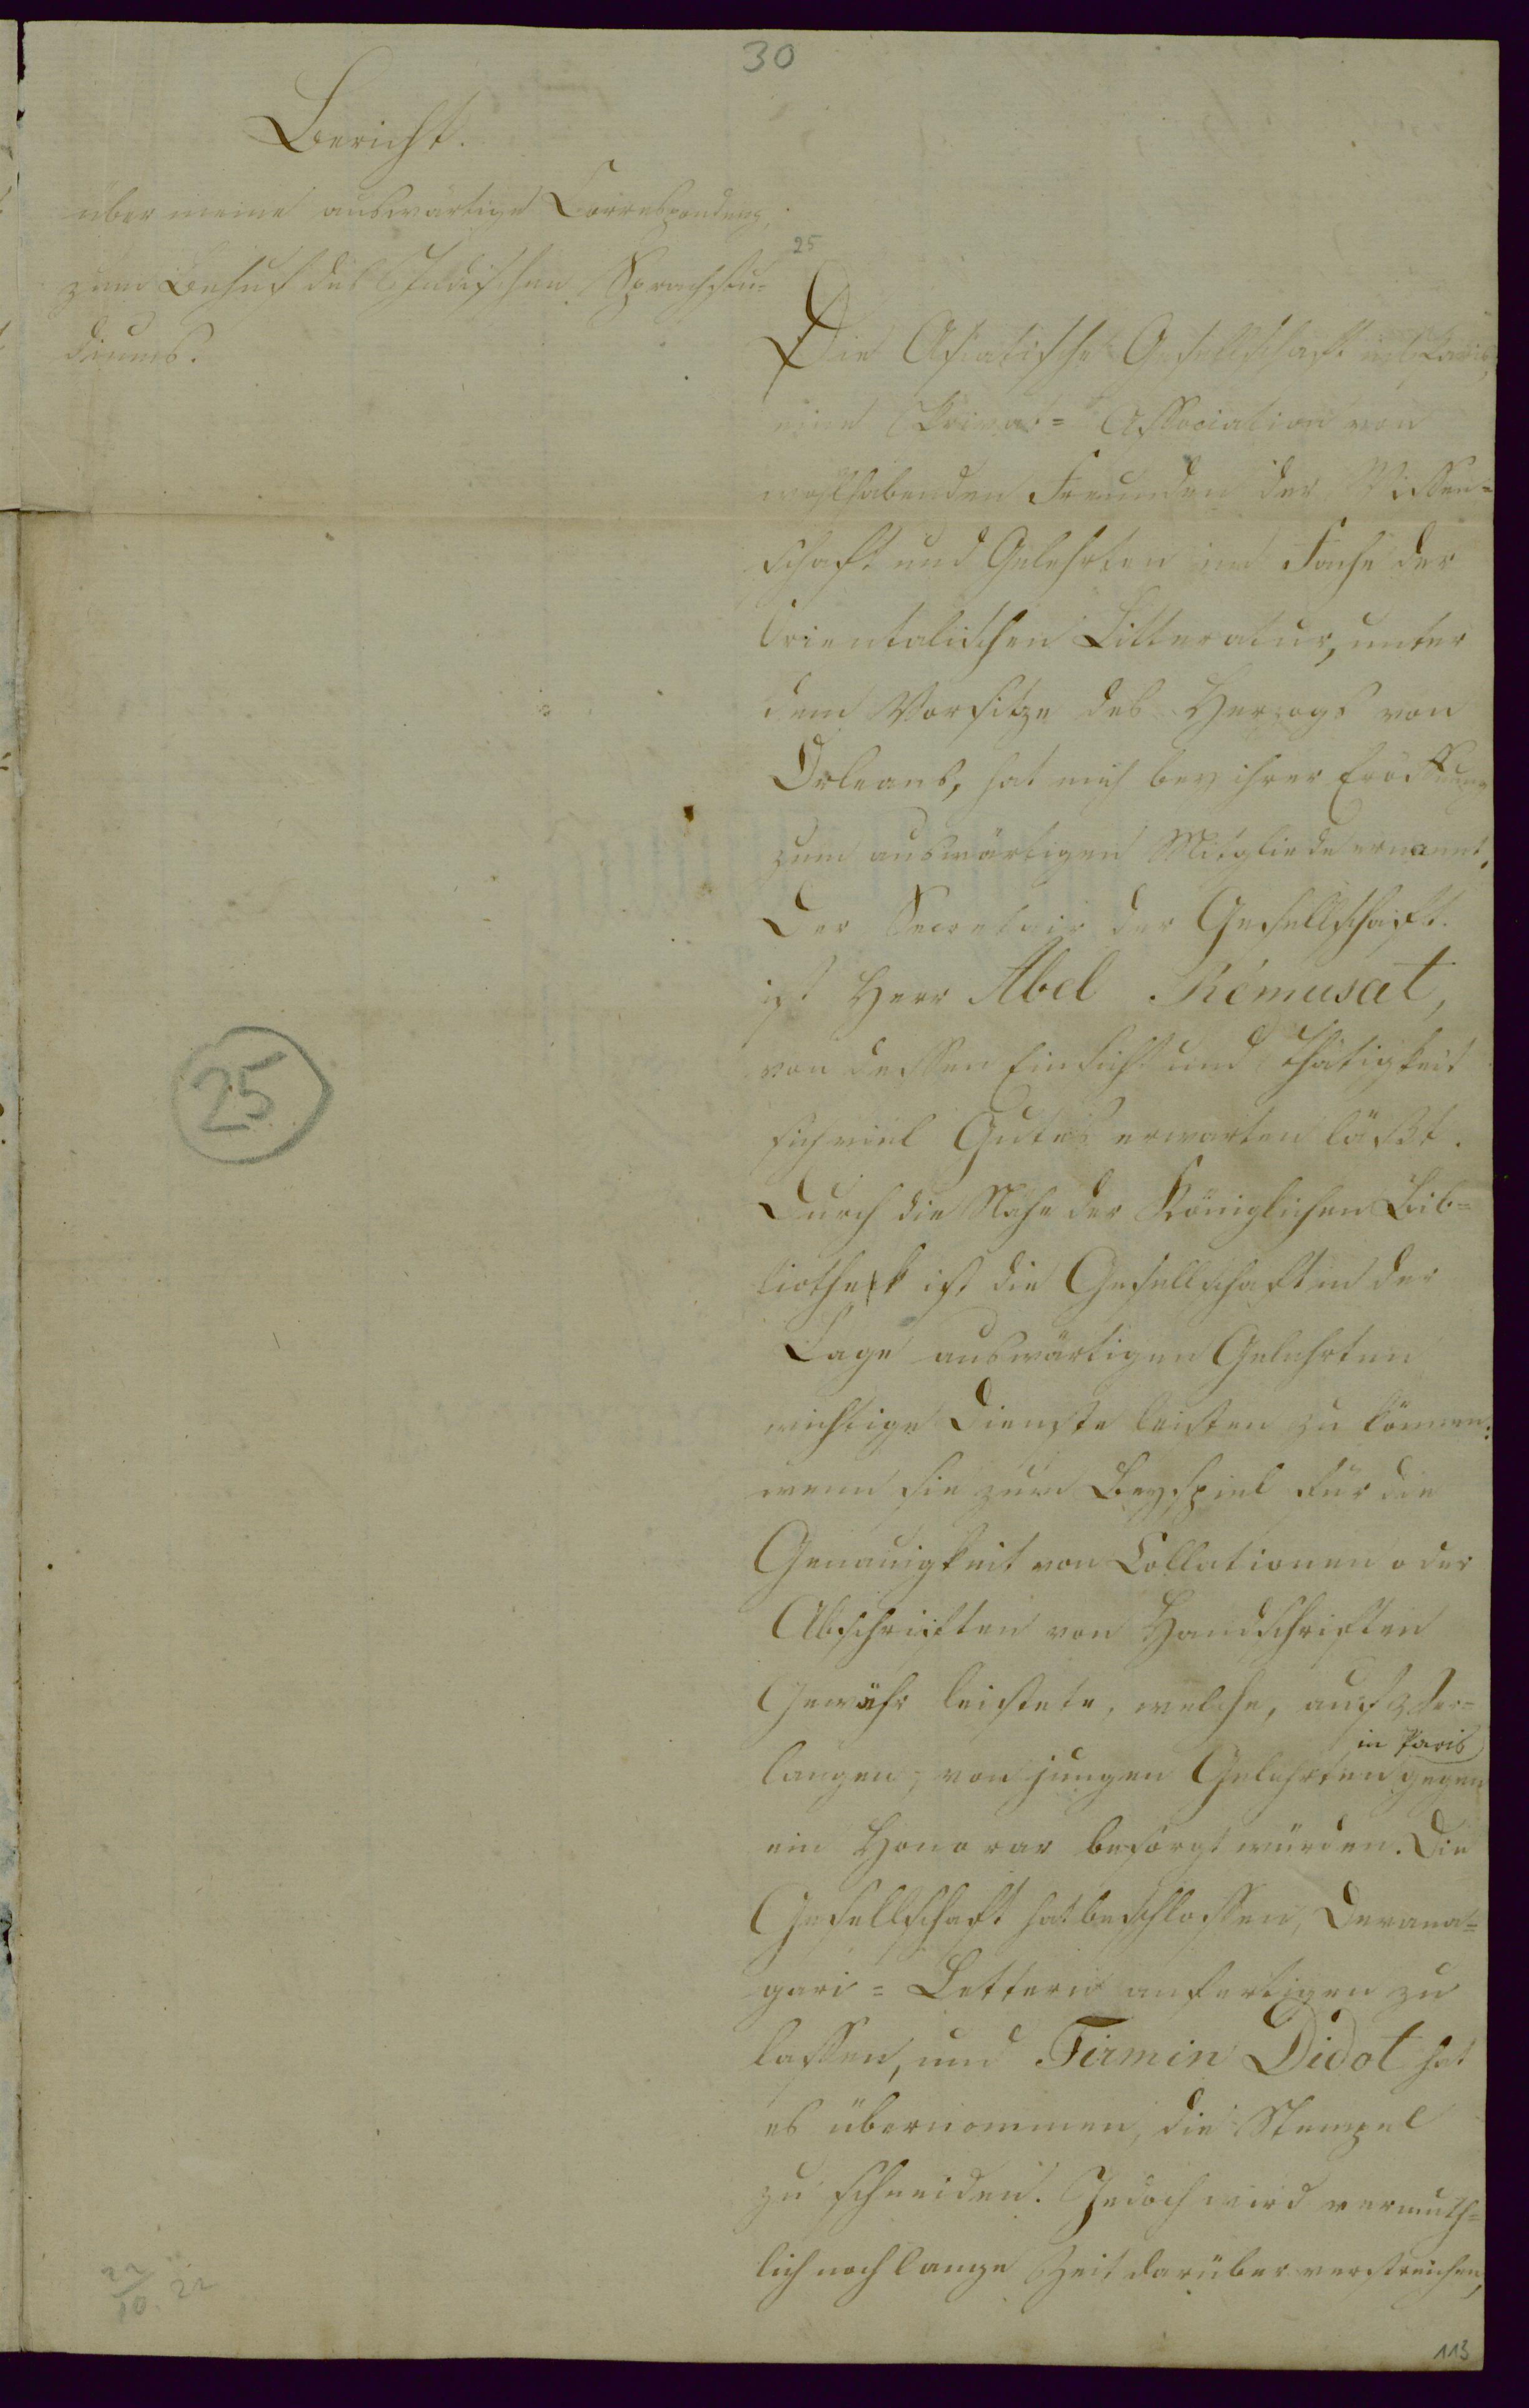 30
Bericht.
über meine auswärtige Correspondenz,
zum Behuf des Indischen Sprachstu-
diums.
25
Die Asiatische Gesellschaft in Paris,
eine Privat-Association von
wohlhabenden Freunden der Wissen-
schaft und Gelehrten im Fache der
Orientalischen Litteratur, unter
dem Vorsitze des Herzogs von
Orleans, hat mich bey ihrer Eröffnung
zum auswärtigen Mitgliede ernannt.
Der Secretair der Gesellschaft
ist Herr Abel Rémusat,
von dessen Einsicht und Thätigkeit
sich viel Gutes erwarten läßt.
Durch die Nähe der Königlichen Bib-
liothek ist die Gesellschaft in der
Lage auswärtigen Gelehrten
wichtige Dienste leisten zu können:
wenn sie zum Beyspiel für die
Genauigkeit von Collationen oder
Abschriften von Handschriften
Gewähr leistete, welche, auf Ver-
in Paris
langen, von jungen Gelehrten gegen
ein Honorar besorgt würden. Die
Gesellschaft hat beschlossen, Devana-
gari-Lettern anfertigen zu
lassen, und Firmin Didot hat
es übernommen, die Stempel
zu schneiden. Jedoch wird vermuth-
lich noch lange Zeit darüber verstreichen,
25
22/10. 22
113